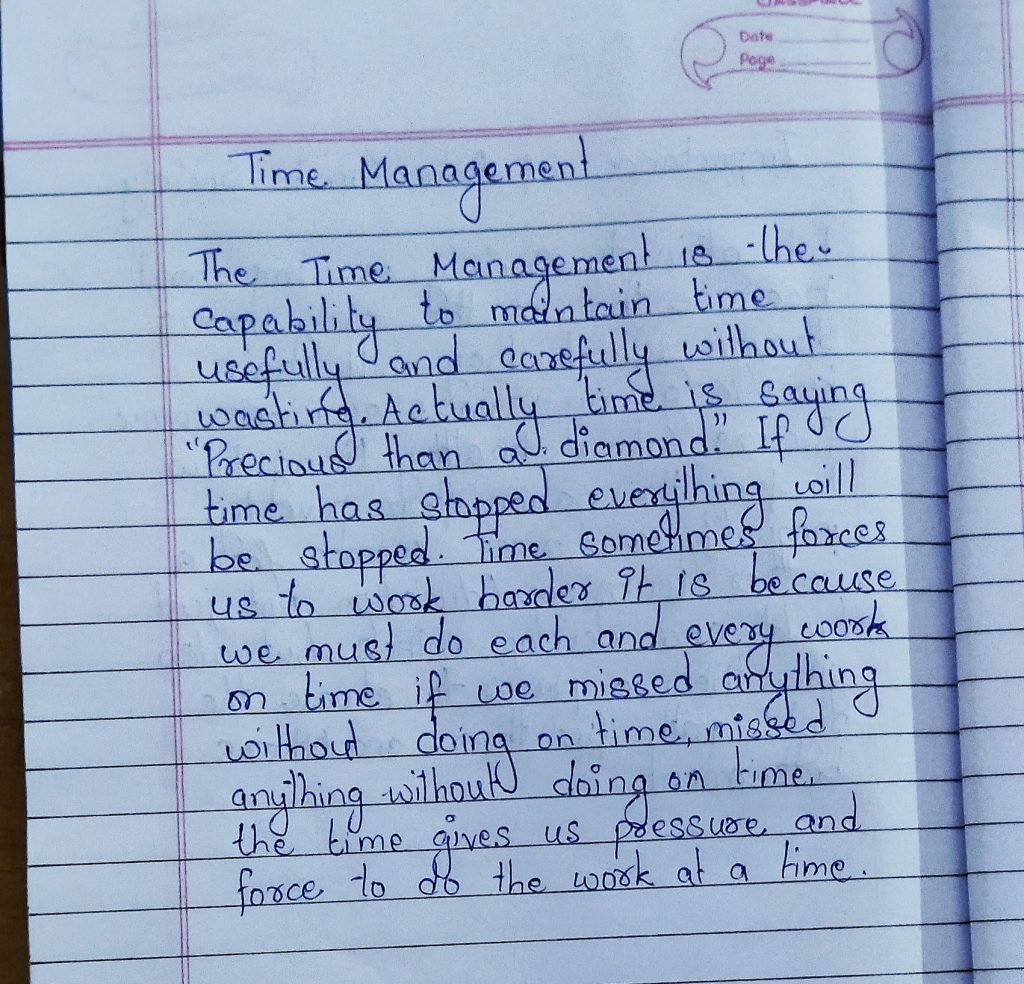 Date
Page
Time Management
The Time Management is the
capability to maintain time
usefully and carefully without
wasting. Actually time is saying
"Precious than a diamond." If
time has stopped everything will
be stopped. Time sometimes forces
us to work harder it is because
we must do each and every work
on time if we missed anything
without doing on time, missed
anything without doing on time,
the time gives us pressure and
force to do the work at a time.